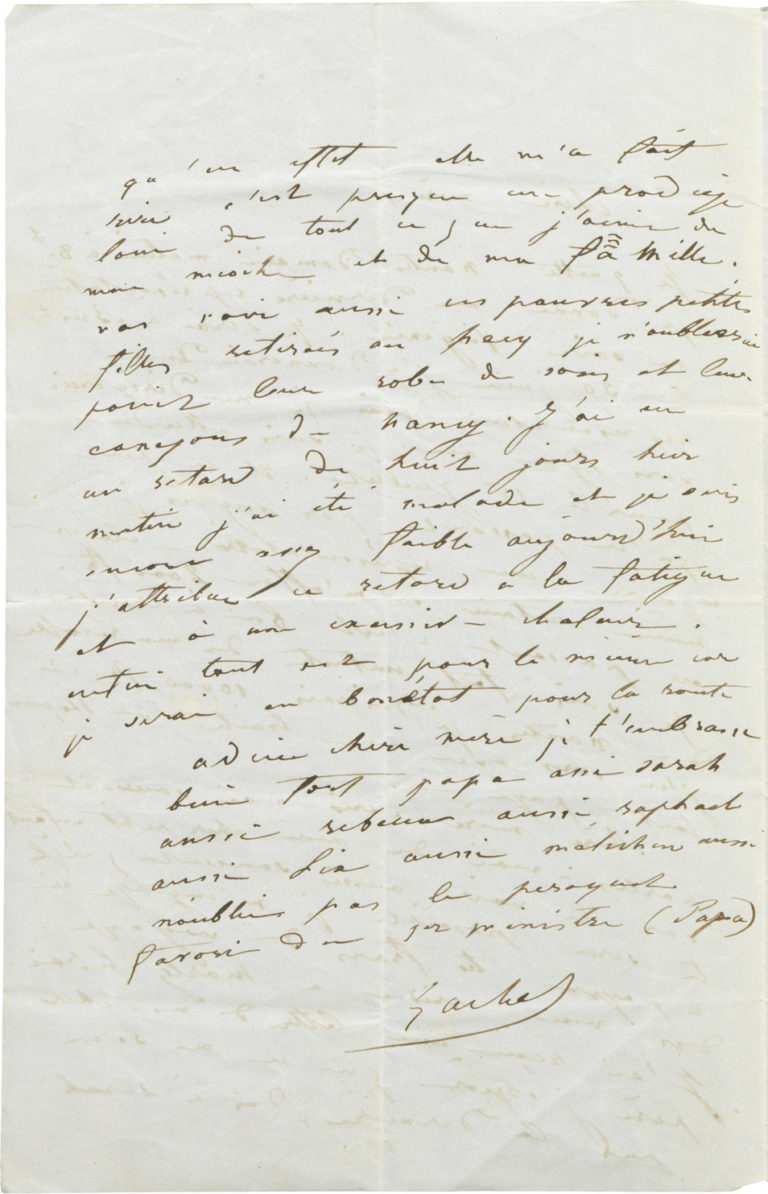 qu'en effet elle m'a fait
rire c'est presque un prodige
loin de tout ce que j'aime de
mon mioche et de ma famille.
vas voir aussi ces pauvres petites
filles retirés au pecq je n'oublierai
point leur robe de soie et leur
caneçons de nancy. J'ai eu
un retard de huit jours hier
matin j'ai été malade et je suis
encore assez faible aujourd'hui
j'attribue ce retard a la fatigue
et à une excessive chaleur.
enfin tout est pour le mieux car
je serai en bon état pour la route
adieu chère mère je t'embrasse
bien fort papa assi sarah
aussi rebecca aussi raphael
aussi Lia aussi mélichon aussi
n'oublies pas le peroquet
favori du 1er ministre (Papa)
Rachel